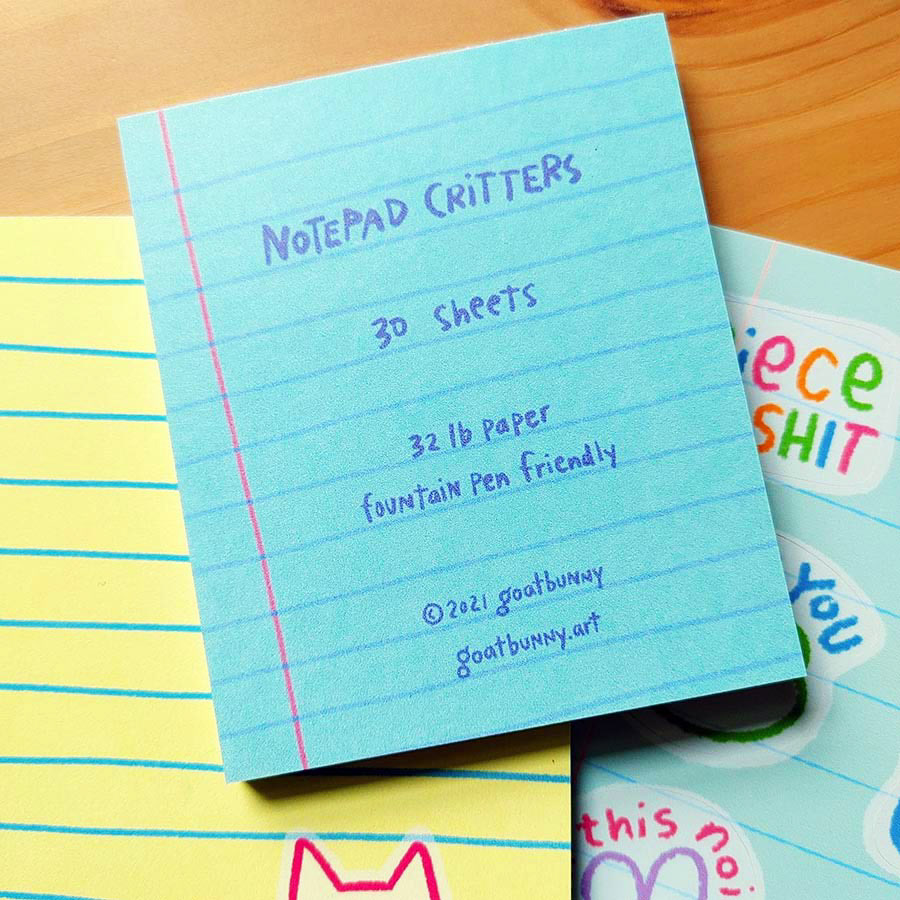 NOTEPAD CRITTERS
30 sheets
32 lb paper
fountain pen friendly
©2021 goatbunny
goatbunny.art
iece
SHIT
YOU
this noi